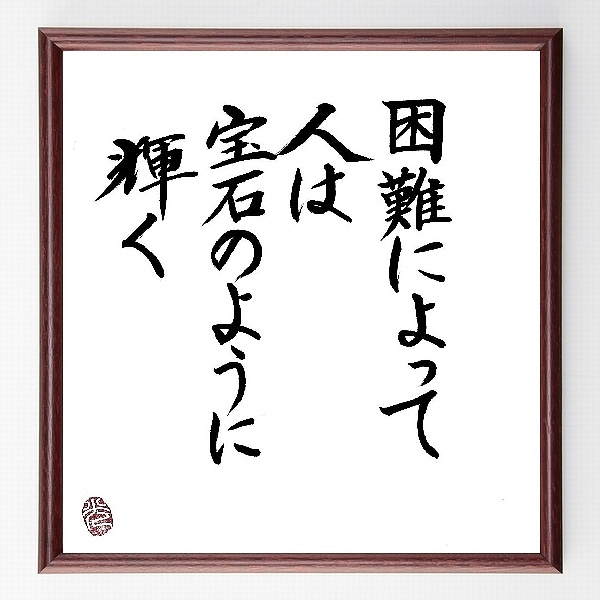 困難によって
人は
宝石のように
輝く